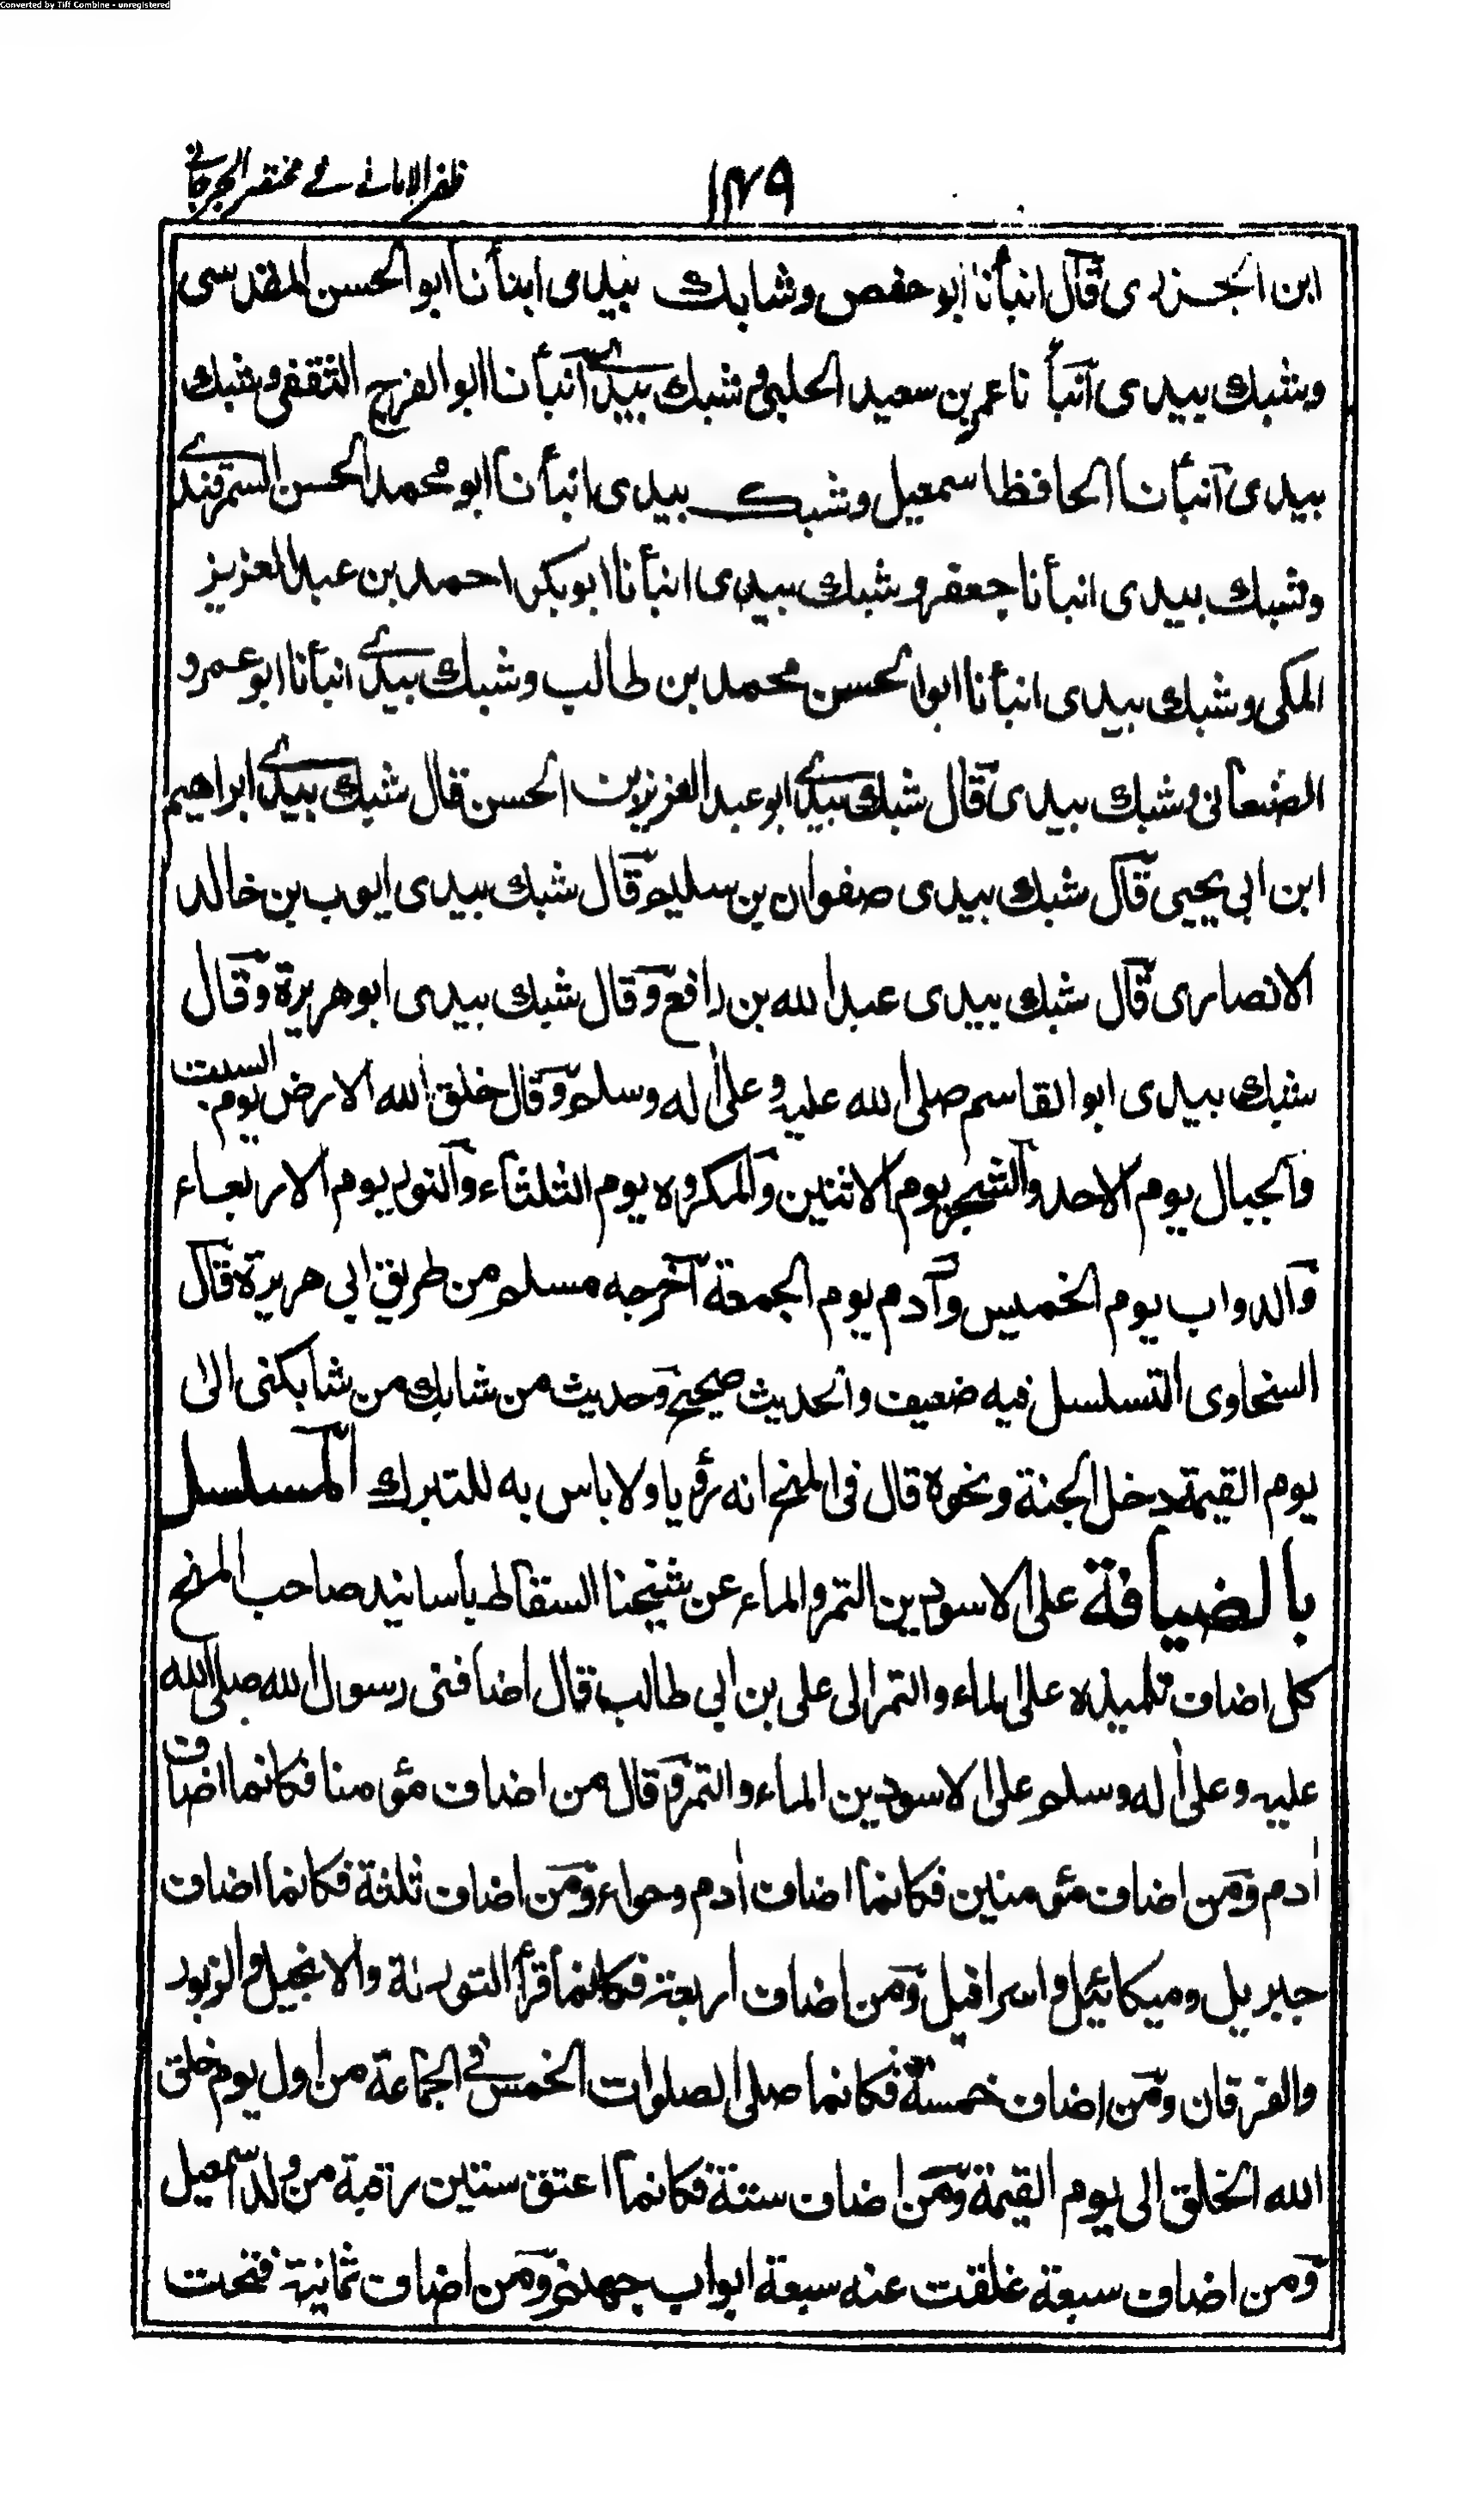 Converted by Tiff Combine - unregistered
ظفر الاماني في مختصر الجرجاني
١٤٩
ابن الجزرى قال انبأنا ابو حفص وشابك بيدى انبأنا ابو الحسن المقدسى
وشبك بيدى انبأ نا عمر بن سعيد الحلبى وشبك بيدى انبأنا ابو الفرج الثقفى وشبك
بيدى انبأنا الحافظ اسمعيل وشبك بيدى انبأنا ابو محمد الحسن السمرقندى
وشبك بيدى انبأنا جعفر وشبك بيدى انبأنا ابو بكر احمد بن عبد العزيز
المكى وشبك بيدى انبأنا ابو الحسن محمد بن طالب وشبك بيدى انبأنا ابو عمرو
الصنعانى وشبك بيدى قال شبك بيدى ابو عبد العزيز بن الحسن قال شبك بيدى ابراهيم
ابن ابى يحيى قال شبك بيدى صفوان بن سليم قال شبك بيدى ايوب بن خالد
الانصارى قال شبك بيدى عبد الله بن رافع وقال شبك بيدى ابو هريرة وقال
شبك بيدى ابو القاسم صلى الله عليه وعلى اله وسلم وقال خلق الله الارض يوم السبت
والجبال يوم الاحد والشجر يوم الاثنين والمكروه يوم الثلثاء والنور يوم الاربعاء
والدواب يوم الخميس وآدم يوم الجمعة اخرجه مسلم من طريق ابى هريرة قال
السخاوى التسلسل فيه ضعيف والحديث صحيح وحديث من شابك من شابكنى الى
يوم القيمة دخل الجنة ونحوه قال فى المنح انه رؤيا ولا باس به للتبرك المسلسل
بالضيافة على الاسودين التمر والماء عن شيخنا السقاط باسانيد صاحب المنح
كل اضاف تلميذه على الماء والتمر الى على بن ابى طالب قال اضافنى رسول الله صلى الله
عليه وعلى اله وسلم على الاسودين الماء والتمر وقال من اضاف مؤمنا فكانما اضاف
ادم ومن اضاف مؤمنين فكانما اضاف ادم وحواء ومن اضاف ثلثة فكانما اضاف
جبريل وميكائيل واسرافيل ومن اضاف اربعة فكانما قرأ التورىة والانجيل والزبور
والفرقان ومن اضاف خمسة فكانما صلى الصلوات الخمس فى الجماعة من اول يوم خلق
الله الخلق الى يوم القيمة ومن اضاف ستة فكانما اعتق ستين رقبة من ولد اسمعيل
ومن اضاف سبعة غلقت عنه سبعة ابواب جهنم ومن اضاف ثمانية فتحت